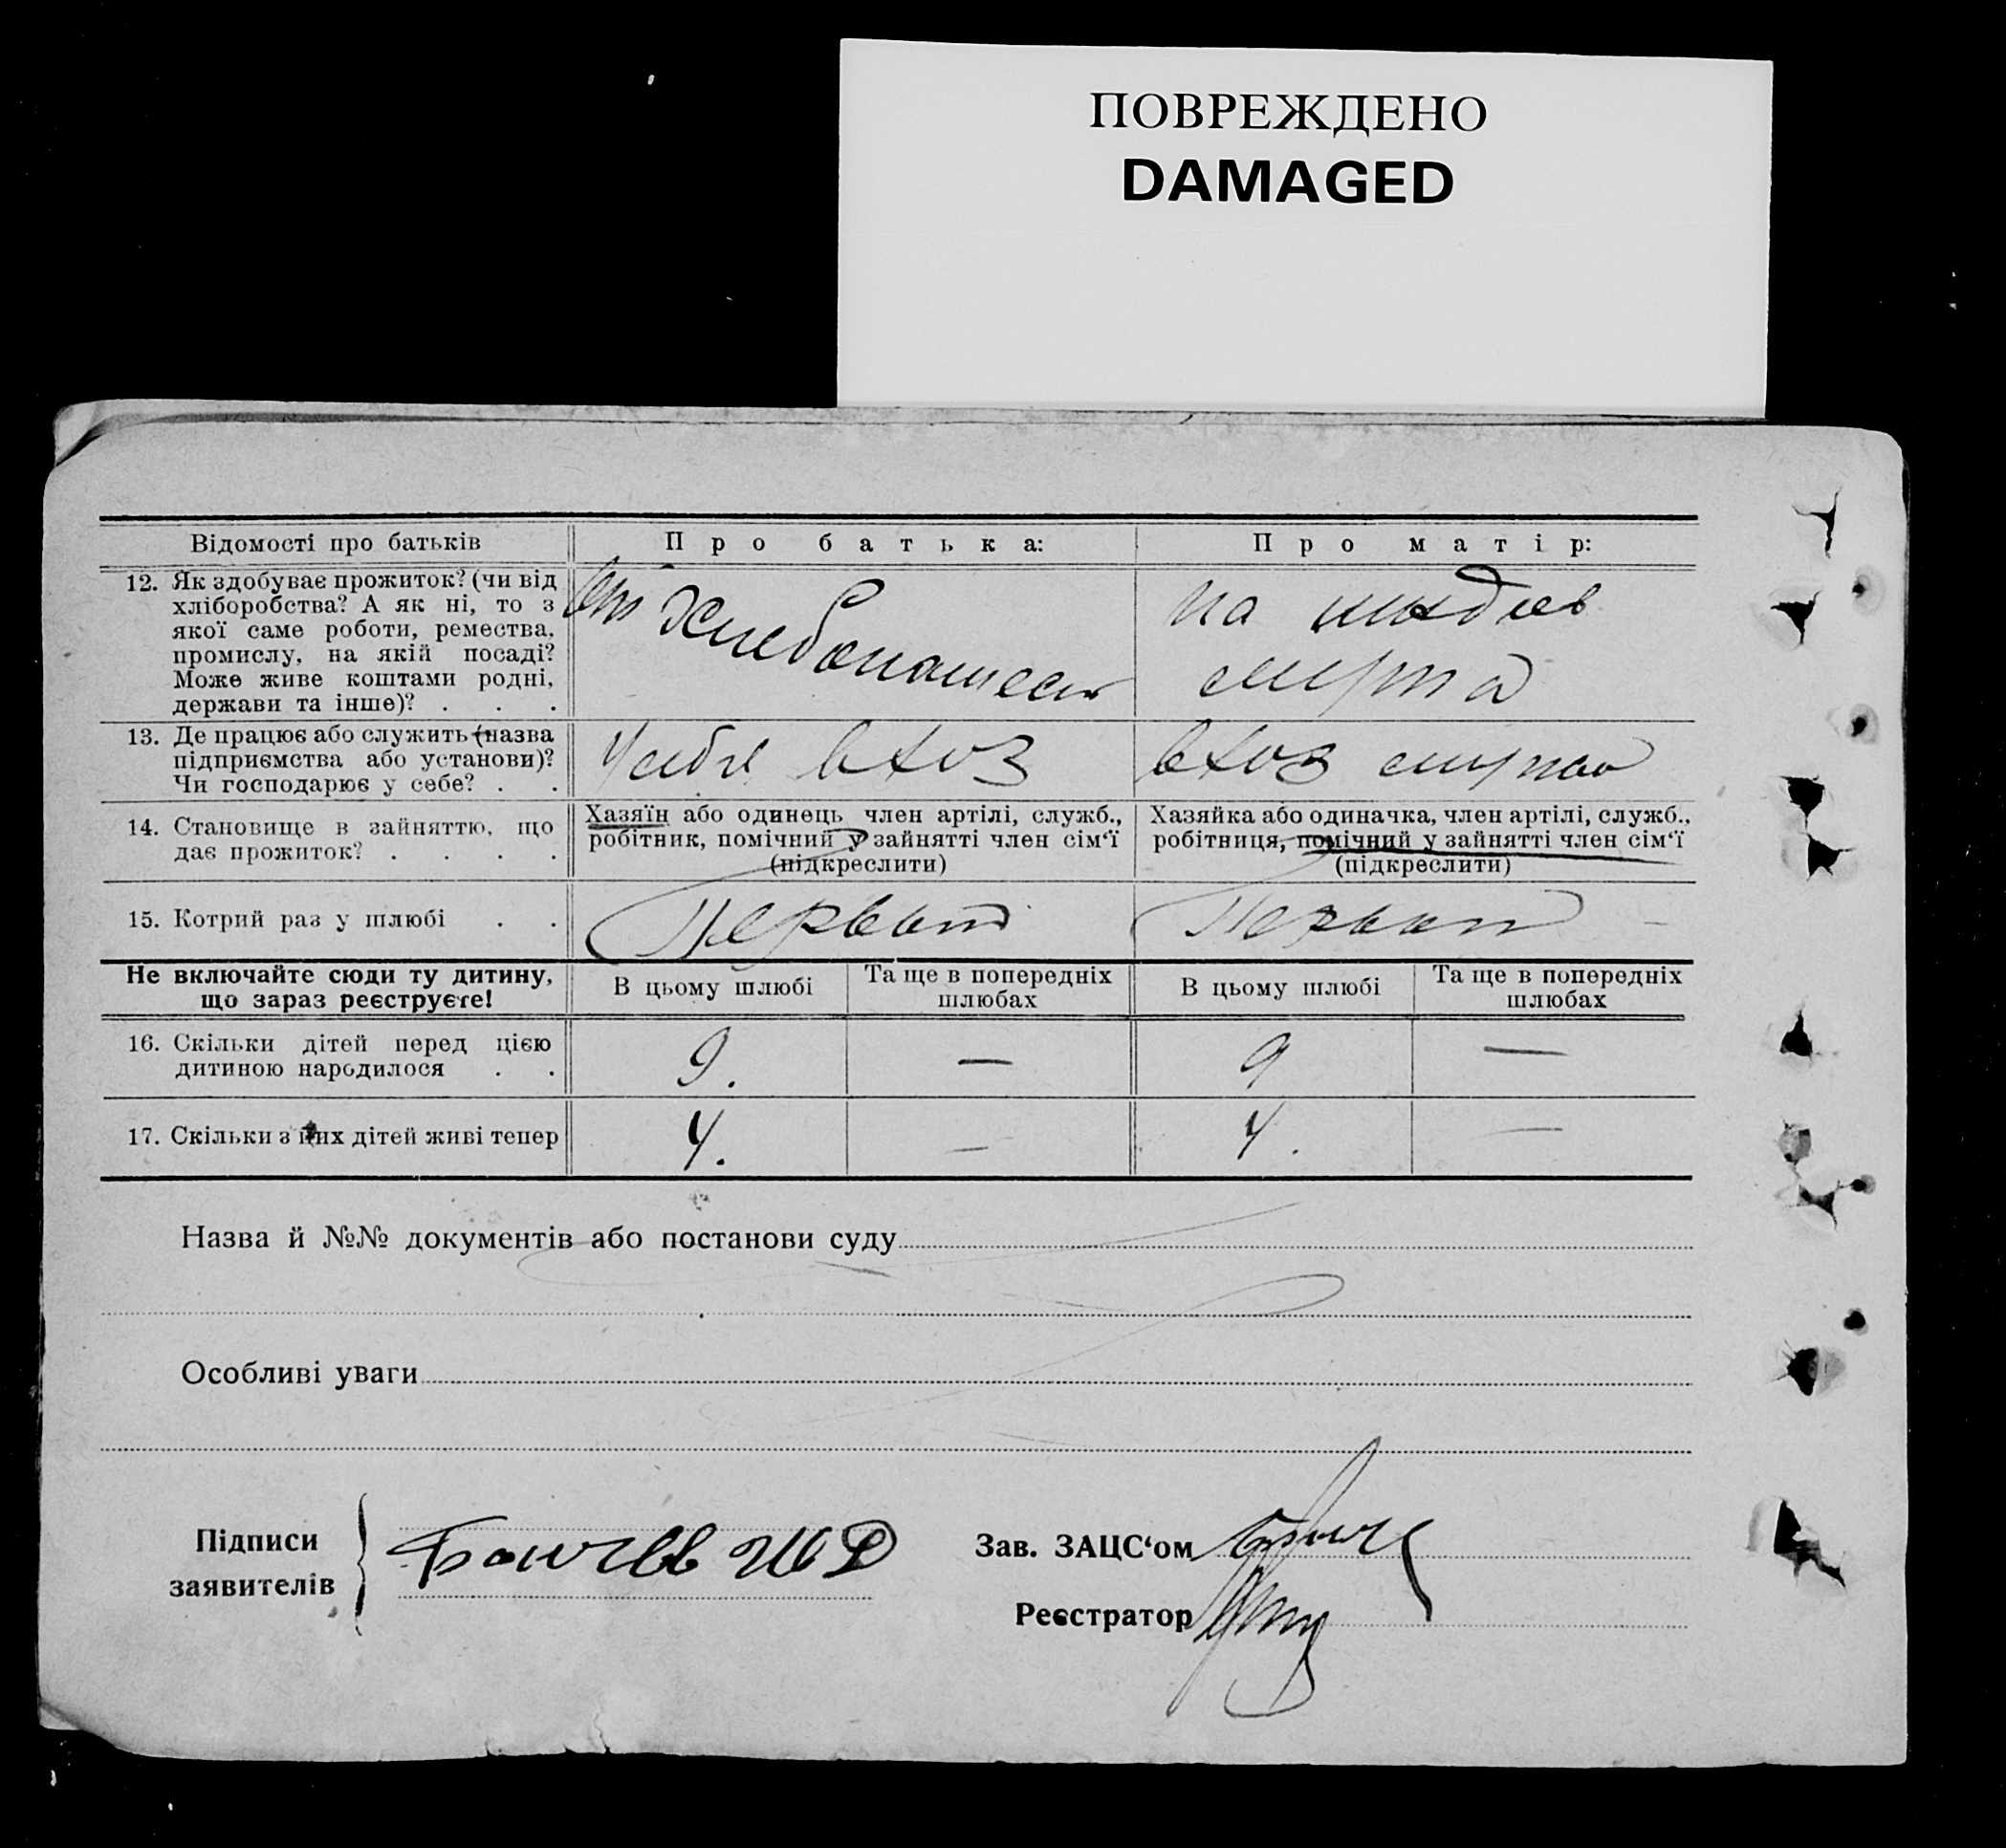 ПОВРЕЖДЕНО
DAMAGED
Відомості про батьків
Про батька:
Про матір:
12. Як здобуває прожиток? (чи від
хліборобства? А як ні, то з
якої саме роботи, ремества,
промислу, на якій посаді?
Може живе коштами родні,
держави та інше)? . . .
От Хлебопашест
на иждив
13. Де працює або служить (назва
підприємства або установи)?
Чи господарює у себе? . .
У себя в хоз
в хоз
14. Становище в зайняттю, що
дає прожиток? . . . .
Хазяїн або одинець член артілі, служб.,
робітник, помічний у зайнятті член сім‘ї
(підкреслити)
Хазяйка або одиначка, член артілі, служб.,
робітниця, помічний у зайнятті член сім‘ї
(підкреслити)
15. Котрий раз у шлюбі . .
Первый
Первый
Не включайте сюди ту дитину,
що зараз реєструєте!
В цьому шлюбі
Та ще в попередніх
шлюбах
В цьому шлюбі
Та ще в попередніх
шлюбах
16. Скільки дітей перед цією
дитиною народилося . .
9.
—
9
—
17. Скільки з них дітей живі тепер
4.
—
4.
—
Назва й №№ документів або постанови суду
Особливі уваги
Підписи
заявителів
Зав. ЗАЦС‘ом
Реєстратор